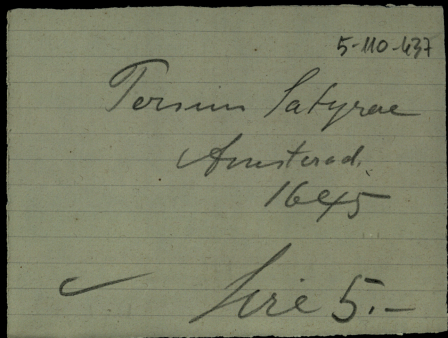 5-110-437
Persius Satyrae
Amsterod.
1645
Lire 5.-